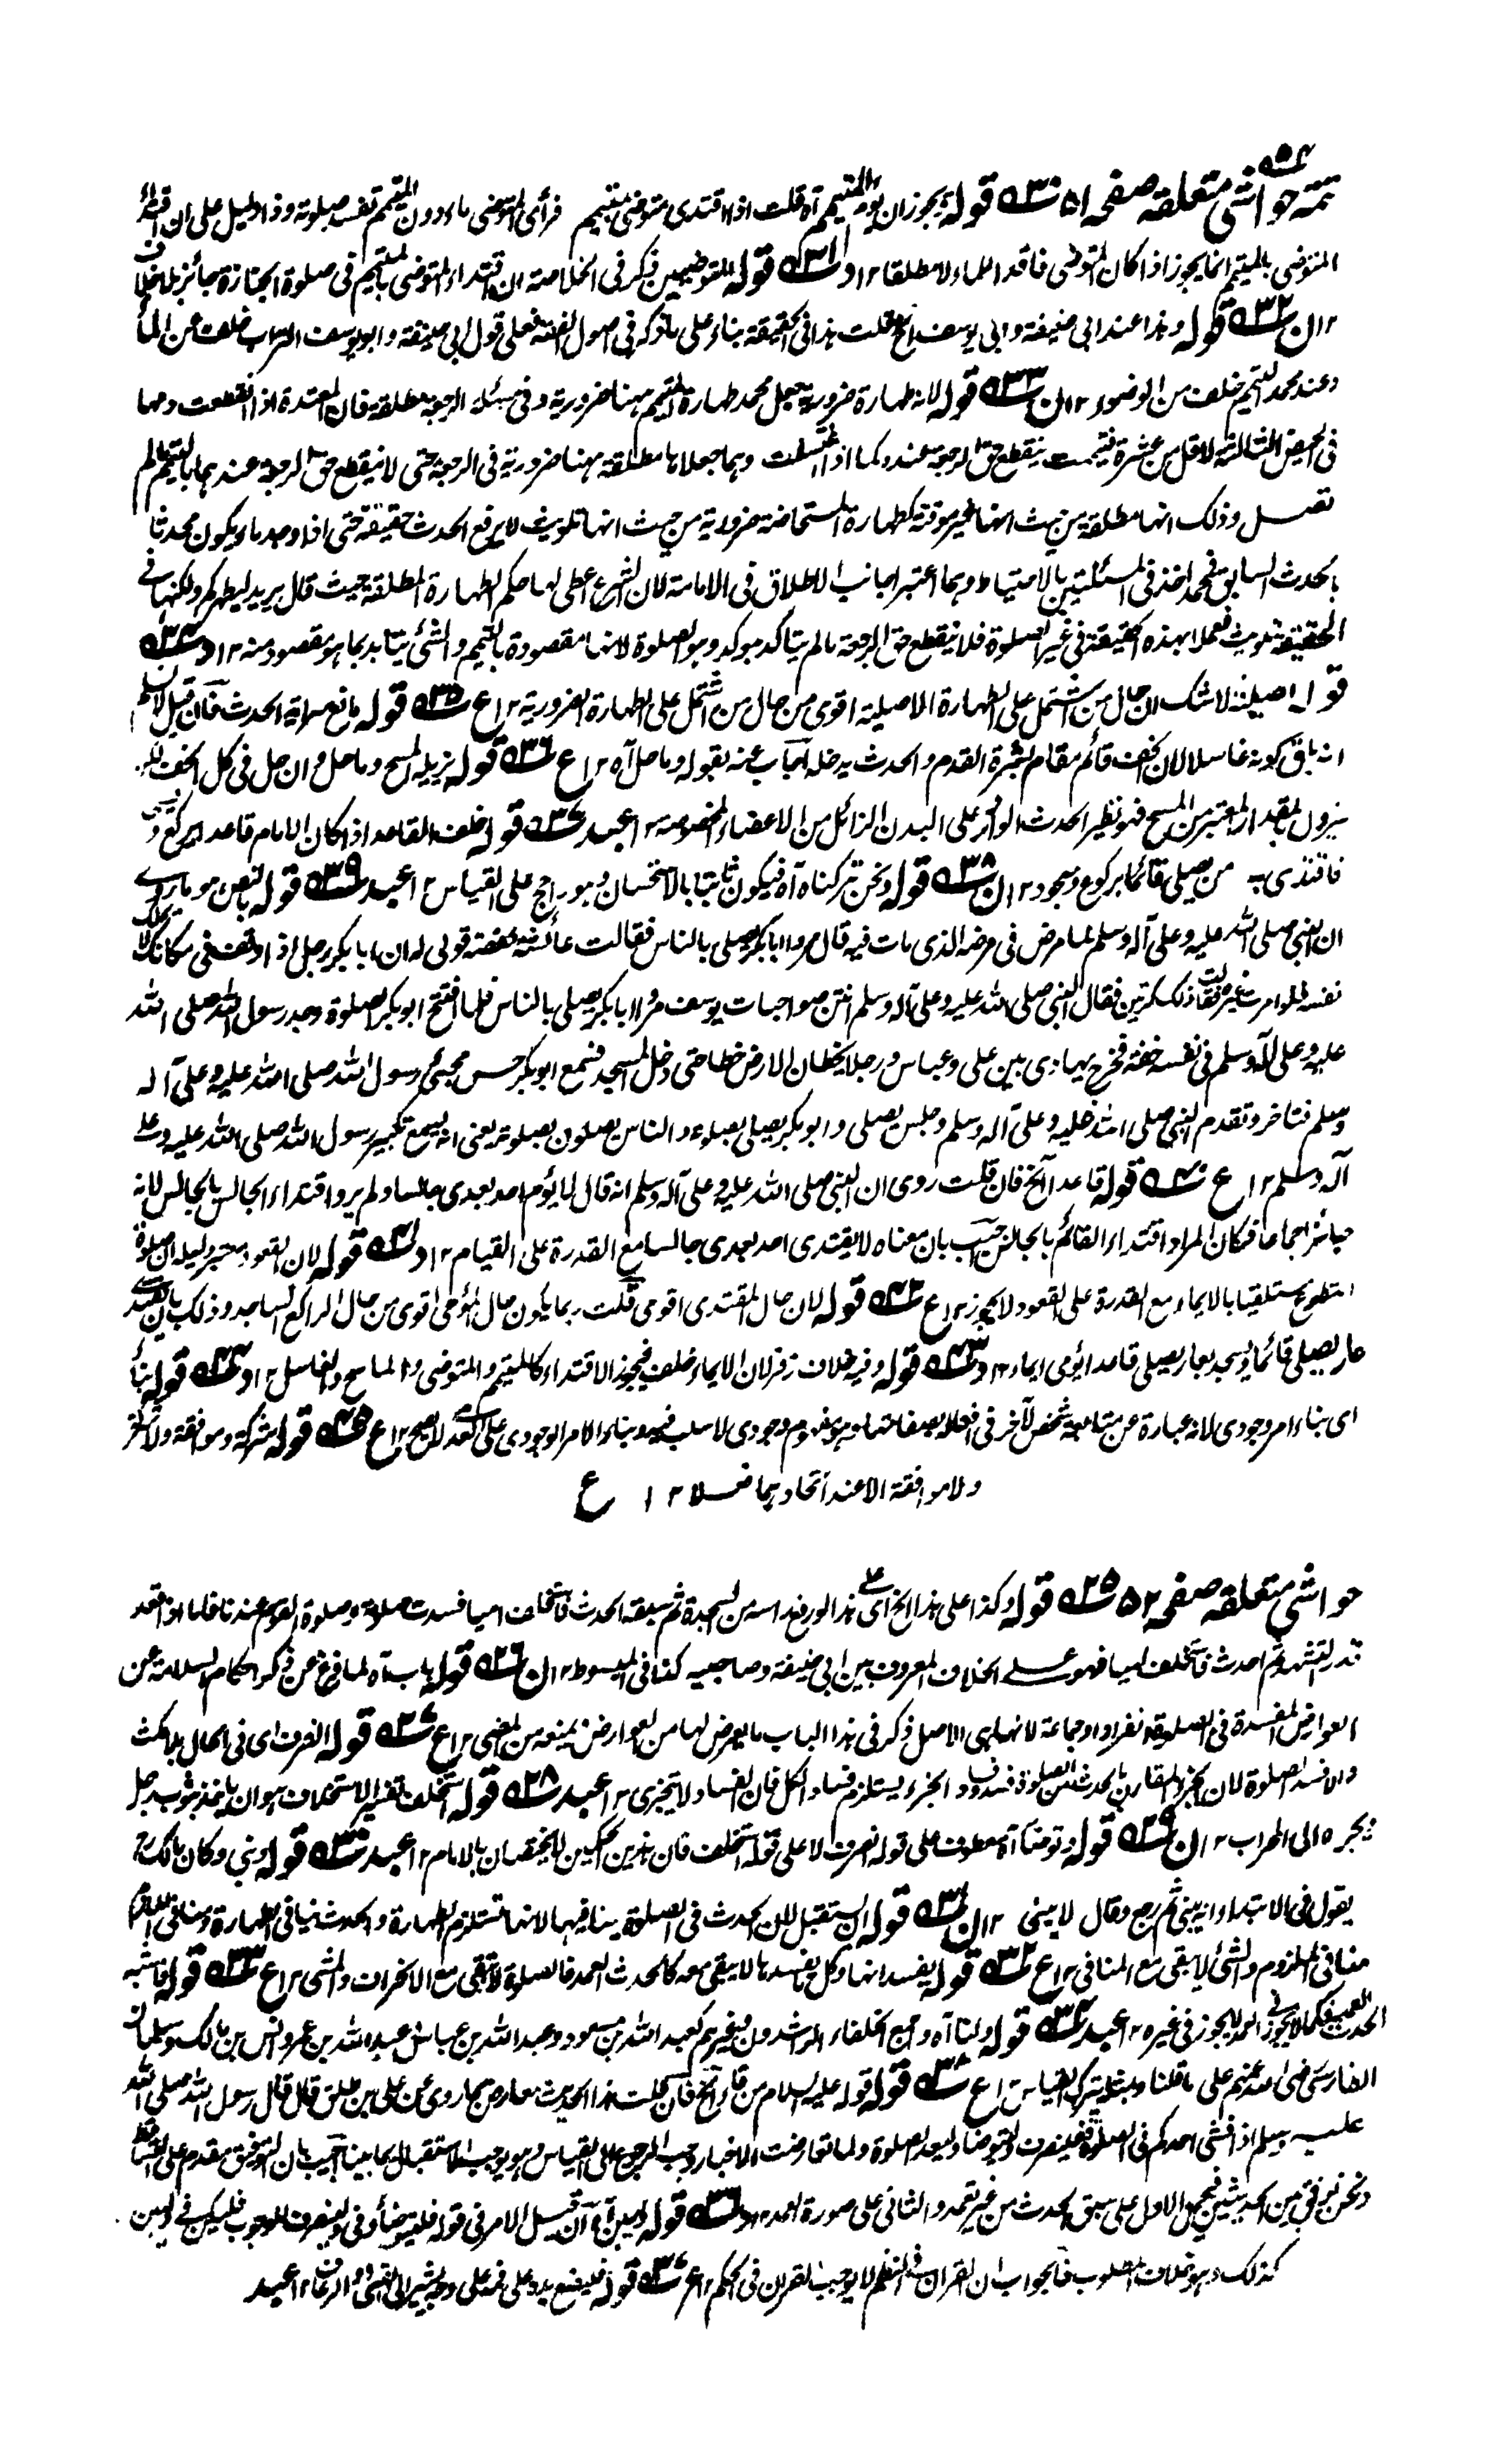 ۵۴
تتمه حواشى متعلقه صفحه ۵۱ ۳۰ قوله يجوز ان يؤم المتيمم آه قلت اذا اقتدى متوضى بمتيمم فرأى المتوضى ماء دون المتيمم تفسد صلوته وذا دليل على ان اقتداء
المتوضى بالمتيمم انما يجوز اذا كان المتوضى فاقد الماء لا مطلقا ١٢ د ۳۱ قوله المتوضيين ذكر فى الخلاصة ان اقتداء المتوضى بالمتيمم فى صلوة الجنازة جائز بلا خلاف
١٢ ن ۳۲ قوله وهذا عند ابى حنيفة وابى يوسف الخ قلت هذا فى الحقيقة بناء على ما ذكر فى اصول الفقه فعلى قول ابى حنيفة وابو يوسف التراب خلف عن الماء
وعند محمد التيمم خلف من الوضوء ١٢ ن ۳۳ قوله لانه طهارة ضرورية جعل محمد طهارة التيمم ههنا ضرورية وفى مسئلة الرجعة مطلقة فان المعتدة اذا انقطعت دمها
فى الحيض الثالثة لاقل من عشرة فتيممت ينقطع حق الرجعة عنده كما اذا اغتسلت وهما جعلاها مطلقة ههنا ضرورية فى الرجعة حتى لا ينقطع حق الرجعة عندهما بالتيمم ما لم
تصل وذلك انها مطلقة من حيث انها غير موقتة كطهارة المستحاضة ضرورية من حيث انها تلويث لا يرفع الحدث حقيقة حتى اذا وجد ماء يكون محدثا
بالحدث السابق فمحمد اخذ فى المسئلتين بالاحتياط وهما اعتبرا جانب الاطلاق فى الامامة لان الشرع اعطى لها حكم الطهارة المطلقة حيث قال يريد ليطهركم ولكنها فى
الحقيقة تلويث فعملا بهذه الحقيقة فى غير الصلوة فلا ينقطع حق الرجعة ما لم يتاكد بموكد وهو الصلوة لانها مقصودة بالتيمم والشئ يتاكد بما هو مقصود منه ١٢ د ۳۴
قوله اصيلة لا شك ان حال من اشتمل على الطهارة الاصلية اقوى من حال من اشتمل على الطهارة الضرورية ١٢ ع ۳۵ قوله مانع سراية الحدث فان قيل لا نسلم
انه باق كونه غاسلا لان الخف قائم مقام بشرة القدم والحدث يدخله اجاب عنه بقوله وما حل آه ١٢ ع ۳۶ قوله يزيله المسح وما حل وان حل فى كل الخف لكن
يزول بالمقدار المعتبر من المسح فهو نظير الحدث الوارد على البدن الزائل من الاعضاء المخصوصة ١٢ عبيد ۳۷ قوله خلف القاعد اذا كان الامام قاعدا يركع ويسجد
فاقتدى به من يصلى قائما بركوع وسجود ١٢ ن ۳۸ قوله ونحن تركناه آه فيكون ثابتا بالاستحسان وهو راجح على القياس ١٢ عبيد ۳۹ قوله بالنص هو ما روى
ان النبى صلى الله عليه وعلى آله وسلم لما مرض فى مرضه الذى مات فيه قال مروا ابا بكر يصلى بالناس فقالت عائشة لحفصة قولى له ان ابا بكر رجل اذا وقف فى مكانك لا يملك
نفسه فلو امرت غيره فقالت ذلك كرتين فقال النبى صلى الله عليه وعلى آله وسلم انتن صواحبات يوسف مروا ابا بكر يصلى بالناس فلما افتتح ابو بكر الصلوة وجد رسول الله صلى الله
عليه وعلى آله وسلم فى نفسه خفة فخرج يهادى بين على وعباس ورجلاه يخطان الارض خطا حتى دخل المسجد فسمع ابو بكر حس مجئ رسول الله صلى الله عليه وعلى آله
وسلم فتاخر وتقدم النبى صلى الله عليه وعلى آله وسلم وجلس يصلى وابو بكر يصلى بصلوته والناس يصلون بصلوته يعنى انه يسمع تكبير رسول الله صلى الله عليه وعلى
آله وسلم ١٢ ع ۴۰ قوله قاعد الخ فان قلت روى ان النبى صلى الله عليه وعلى آله وسلم انه قال لا يؤم احد بعدى جالسا ولم يرد اقتداء الجالس بالجالس لانه
جائز اجماعا فكان المراد اقتداء القائم بالجالس اجيب بان معناه لا يقتدى احد بعدى جالسا مع القدرة على القيام ١٢ د ۴۱ قوله لان القعود معتبر دليله ان صلوة
التطوع مستلقيا بالايماء مع القدرة على القعود لا يجوز ١٢ ع ۴۲ قوله لان حال المقتدى اقوى قلت ربما يكون حال المؤمى اقوى من حال الراكع الساجد وذلك بان يقتدى
عار يصلى قائما ويسجد بعار يصلى قاعدا يؤمى ايماء ١٢ د ۴۳ قوله وفيه خلاف زفر لان الايماء خلف فيجوز الاقتداء كالمتيمم والمتوضى والماسح والغاسل ١٢ د ۴۴ قوله بناء
اى بناء امر وجودى لانه عبارة عن متابعة شخص لآخر فى افعاله بصفاتها وهو مفهوم وجودى لا سلب فيه وبناء الامر الوجودى على العدمى لا يصح ١٢ ع ۴۵ قوله شركة وموافقة ولا شركة
ولا موافقة الا عند اتحاد بهما فعلا ١٢ ع
حواشى متعلقه صفحه ۵۲ ۲۵ قوله وكذا على هذا الخ اى على هذا لو رفع راسه من السجدة ثم سبقه الحدث فاستخلف اميا فسدت صلوته وصلوة القوم عندنا فاما اذا قعد
قدر التشهد ثم احدث فاستخلف اميا فهو على الخلاف المعروف بين ابى حنيفة وصاحبيه كذا فى المبسوط ١٢ ن ۲۶ قوله باب آه لما فرغ من ذكر احكام السلامة عن
العوارض المفسدة فى الصلوة انفرادا وجماعة لانها هى الاصل ذكر فى هذا الباب ما يعرض لها من العوارض يمنعه من المضى ١٢ ع ۲۷ قوله انصرف اى فى الحال بلا مكث
والا فسد الصلوة لان الجزء المقارن بالحدث من الصلوة فسد وفساد الجزء يستلزم فساد الكل فان الفساد لا يتجزى ١٢ عبيد ۲۸ قوله استخلف تفسير الاستخلاف هو ان ياخذ بثوب رجل
يجره الى المحراب ١٢ ن ۲۹ قوله وتوضأ آه معطوف على قوله انصرف لا على قوله استخلف فان هذين الحكمين لا يختصان بالامام ١٢ عبيد ۳۰ قوله وبنى وكان مالك رح
يقول فى الابتداء انه يبنى ثم رجع وقال لا يبنى ١٢ ن ۳۱ قوله ان يستقبل لان الحدث فى الصلوة ينافيها لانها تستلزم الطهارة والحدث ينافى الطهارة ومنافى اللازم
منافى الملزوم والشئ لا يبقى مع المنافى ١٢ ع ۳۲ قوله يفسدانها وكل ما يفسدها لا يبقى معه كالحدث العمد فالصلوة لا تبقى مع الانحراف والمشى ١٢ ع ۳۳ قوله فاشبه
الحدث العمد فكما لا يجوز فى العمد لا يجوز فى غيره ١٢ عبيد ۳۴ قوله ولنا آه واجمع الخلفاء الراشدون وغيرهم كعبد الله بن مسعود وعبد الله بن عباس وعبد الله بن عمر وانس بن مالك وسلمان
الفارسى رضى الله عنهم على ما قلنا وبمثله يترك القياس ١٢ ع ۳۵ قوله قوله عليه السلام من قاء الخ فان قلت هذا الحديث معارض بما روى عن على بن طلق قال قال رسول الله صلى الله
عليه وسلم اذا فسى احدكم فى الصلوة فلينصرف وليتوضأ وليعد الصلوة ولما تعارضت الاخبار وجب المرجع الى القياس وهو يوجب الاستقبال بما بينا اجيب بان التوفيق مقدم على التساقط
ونحن نوفق بين الحديثين فيحمل الاول على سبق الحدث من غير تعمد والثانى على صورة العمد ١٢ د ۳۶ قوله وليبن آه ان قيل الامر فى قوله فليتوضأ وفى ولينصرف للوجوب فليكن فى وليبن
كذلك وهو خلاف المطلوب فالجواب ان القران فى النظم لا يوجب القران فى الحكم ١٢ ع ۳۷ قوله فليضع يده على فمه على وجه يشير الى القئ او الرعاف ١٢ عبيد